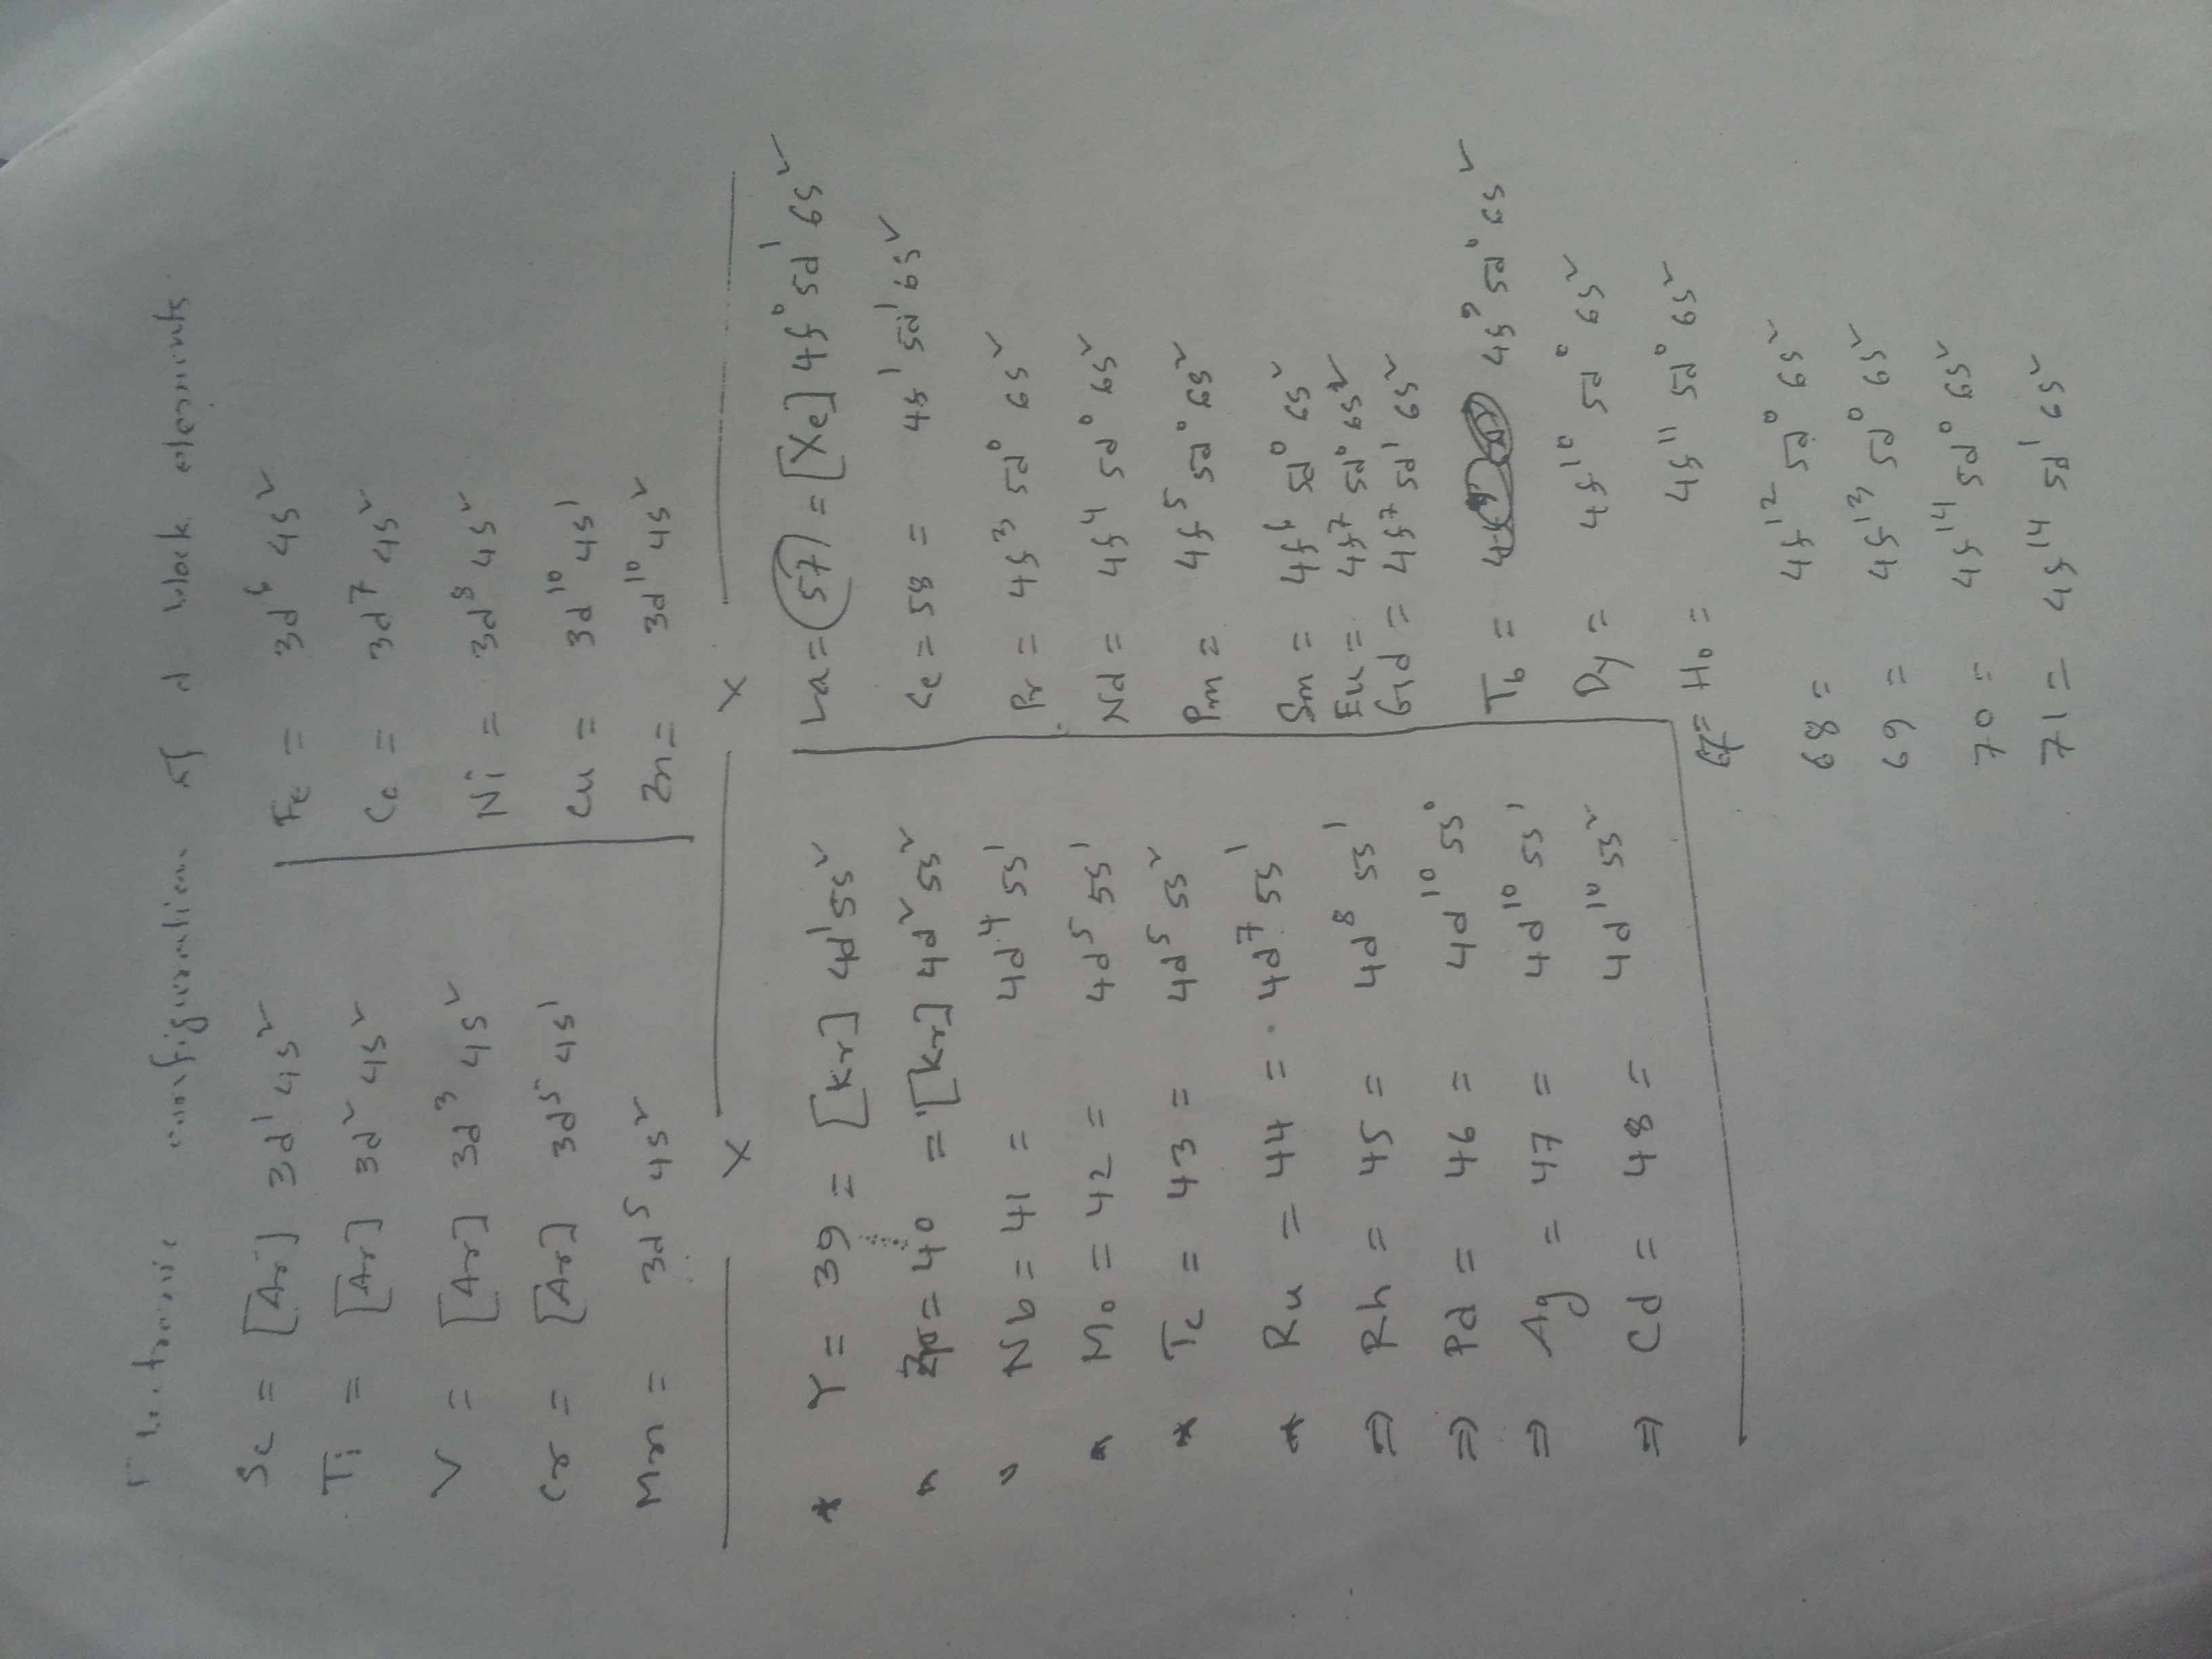 Electronic configuration of d block elements
Sc = [Ar] 3d¹ 4s²
Ti = [Ar] 3d² 4s²
V = [Ar] 3d³ 4s²
Cr = [Ar] 3d⁵ 4s¹
Mn = 3d⁵ 4s²
Fe = 3d⁶ 4s²
Co = 3d⁷ 4s²
Ni = 3d⁸ 4s²
Cu = 3d¹⁰ 4s¹
Zn = 3d¹⁰ 4s²
X X
* Y = 39 = [Kr] 4d¹ 5s²
* Zr = 40 = [Kr] 4d² 5s²
* Nb = 41 = 4d⁴ 5s¹
* Mo = 42 = 4d⁵ 5s¹
* Tc = 43 = 4d⁵ 5s²
* Ru = 44 = 4d⁷ 5s¹
⇒ Rh = 45 = 4d⁸ 5s¹
⇒ Pd = 46 = 4d¹⁰ 5s⁰
⇒ Ag = 47 = 4d¹⁰ 5s¹
⇒ Cd = 48 = 4d¹⁰ 5s²
La = 57 = [Xe] 4f⁰ 5d¹ 6s²
Ce = 58 = 4f¹ 5d¹ 6s²
Pr = 4f³ 5d⁰ 6s²
Nd = 4f⁴ 5d⁰ 6s²
Pm = 4f⁵ 5d⁰ 6s²
Sm = 4f⁶ 5d⁰ 6s²
Eu = 4f⁷ 5d⁰ 6s²
Gd = 4f⁷ 5d¹ 6s²
Tb = 4f⁹ 5d⁰ 6s²
Dy = 4f¹⁰ 5d⁰ 6s²
67 = Ho = 4f¹¹ 5d⁰ 6s²
68 = 4f¹² 5d⁰ 6s²
69 = 4f¹³ 5d⁰ 6s²
70 = 4f¹⁴ 5d⁰ 6s²
71 = 4f¹⁴ 5d¹ 6s²